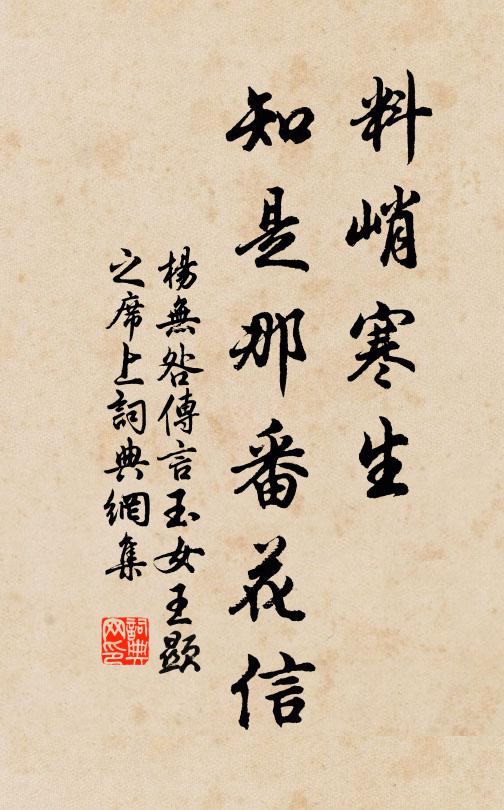 料峭寒生
知是那番花信
楊無咎傳言玉女王顯
之席上詞典網集
詞典网印